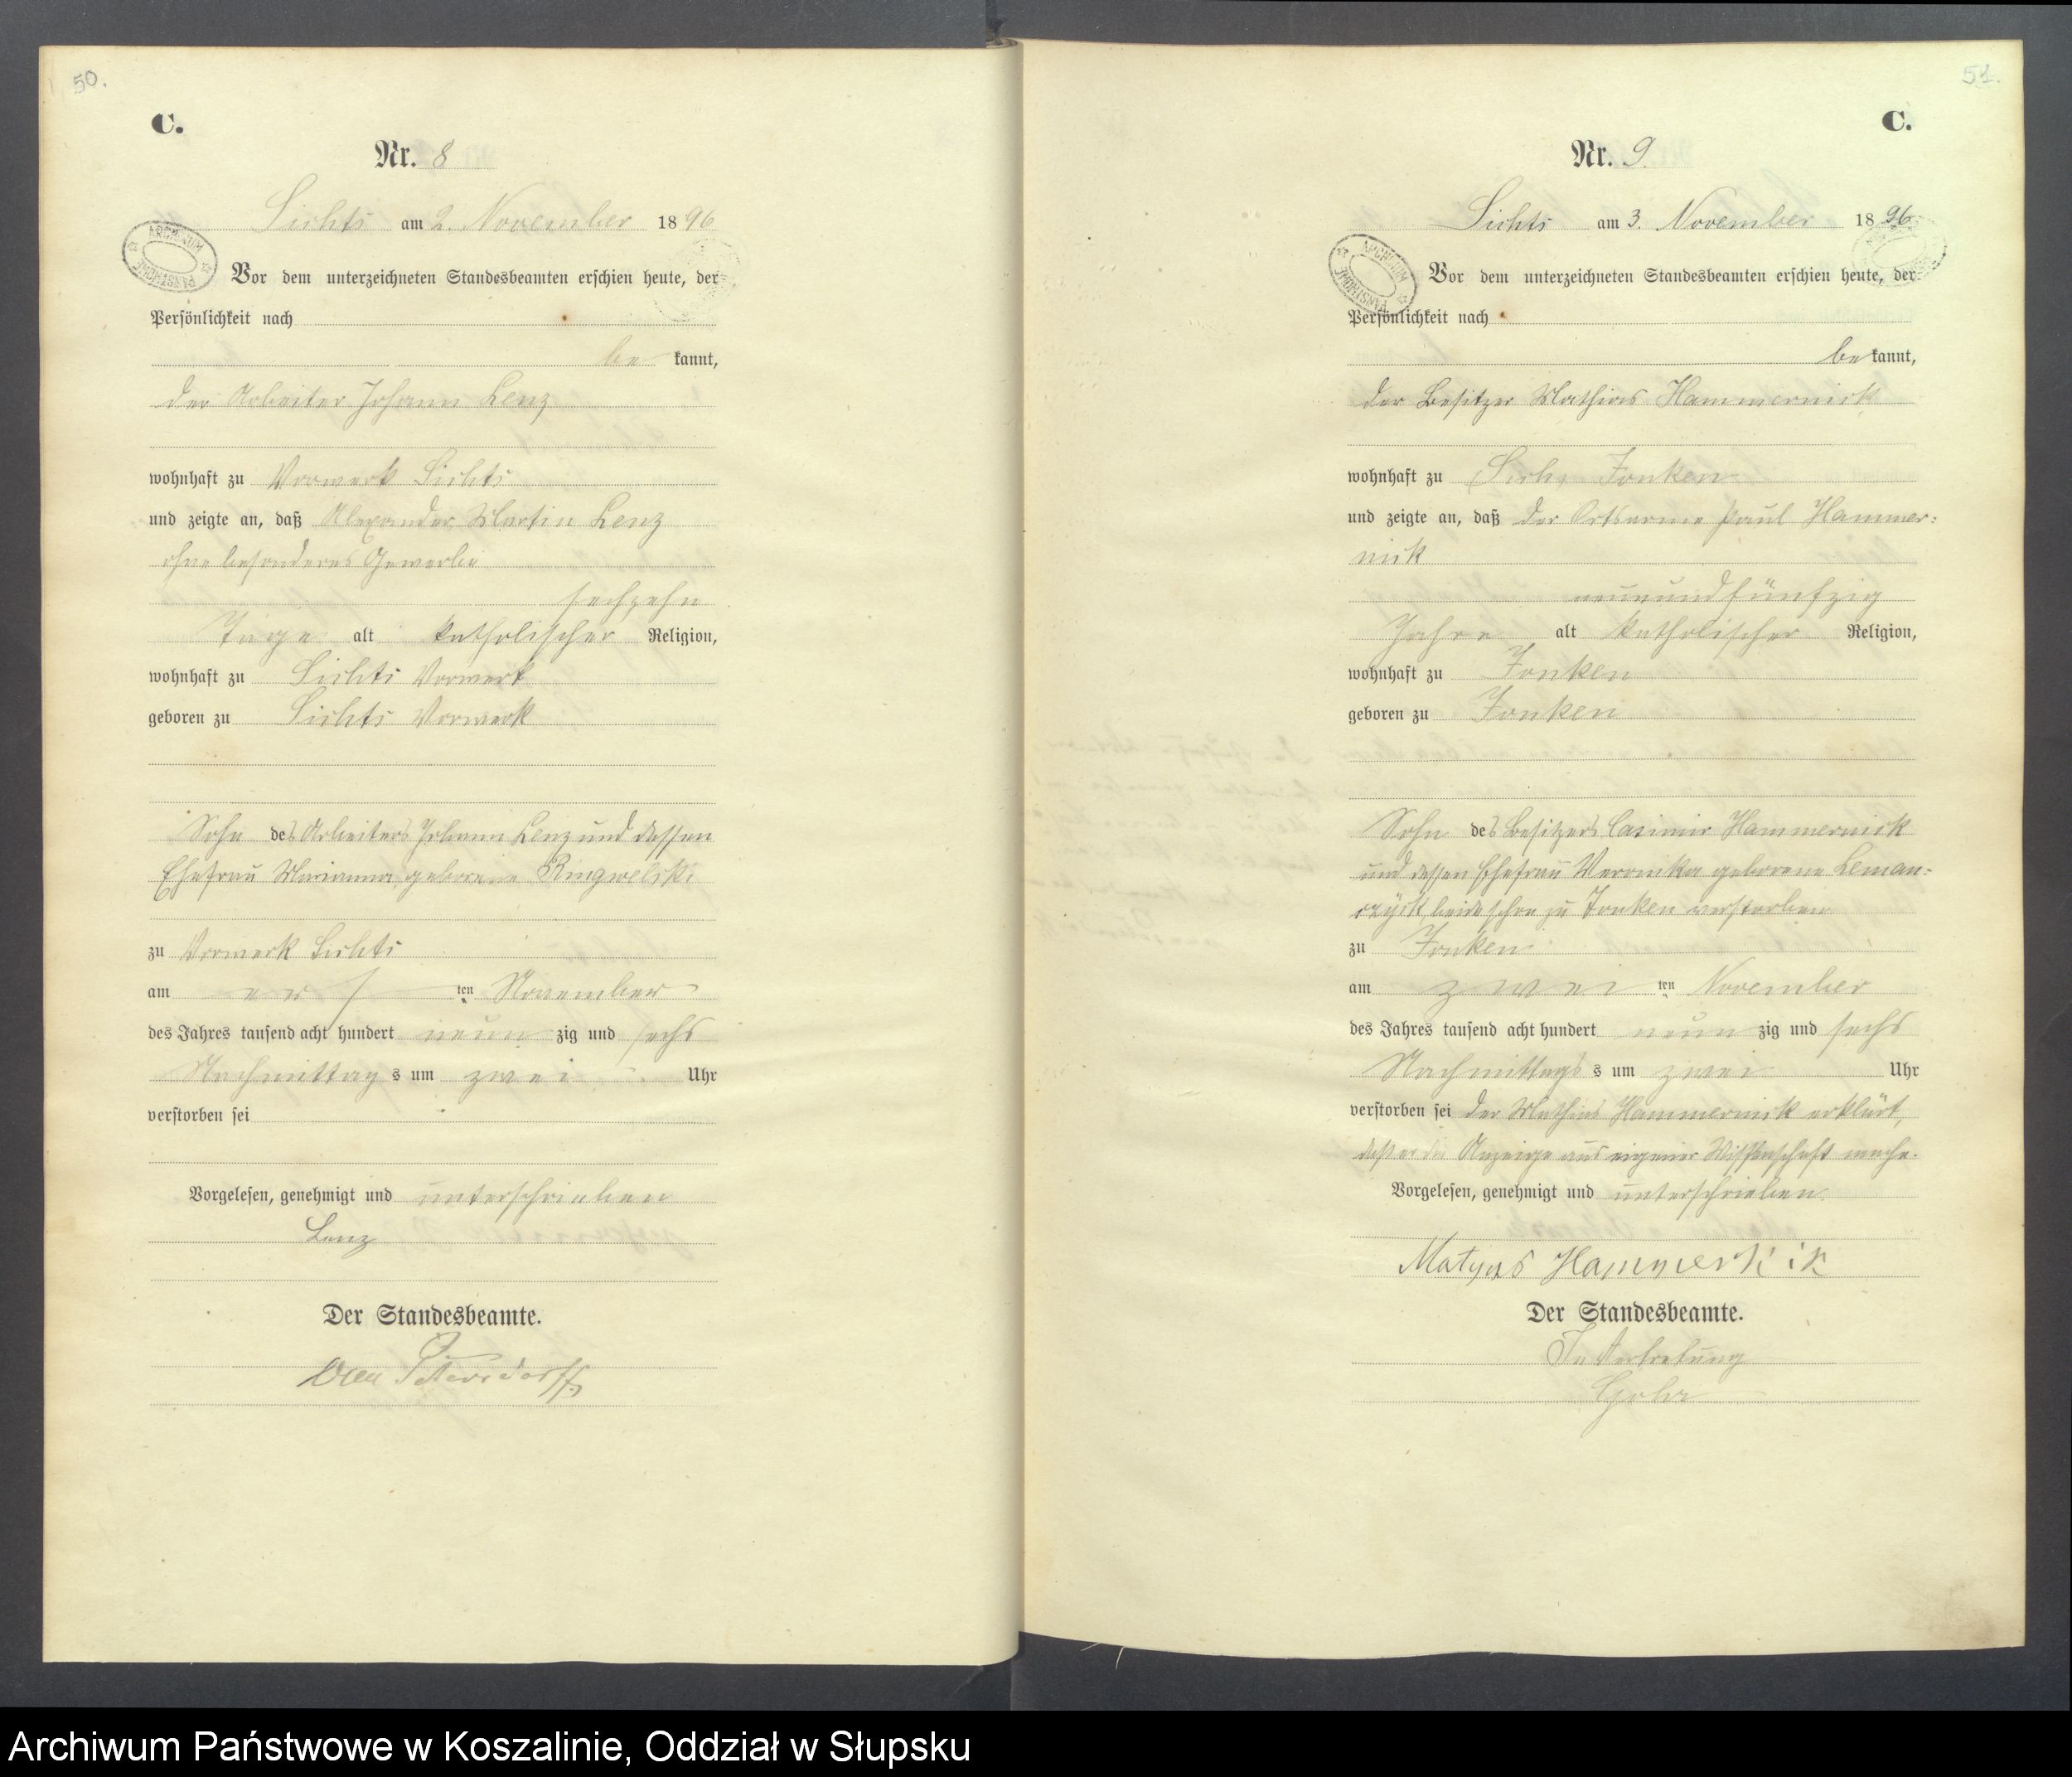 50.
C.
Nr. 8
Lichts am 2. November 1896
ARCHIWUM PAŃSTWOWE
Vor dem unterzeichneten Standesbeamten erschien heute, der
Persönlichkeit nach
be kannt,
der Arbeiter Johann Lenz
wohnhaft zu Vorwerk Lichts
und zeigte an, daß Alexander Martin Lenz
ohne besonderes Gewerbe
sechzehn
Tage alt katholischer Religion,
wohnhaft zu Lichts Vorwerk
geboren zu Lichts Vorwerk
Sohn des Arbeiters Johann Lenz und dessen
Ehefrau Marianna geborene Ringwelski
zu Vorwerk Lichts
am ers ten November
des Jahres tausend acht hundert neun zig und sechs
Nachmittag s um zwei Uhr
verstorben sei
Vorgelesen, genehmigt und unterschrieben
Lenz
Der Standesbeamte.
Petersdorff
51.
C.
Nr. 9.
Lichts am 3. November 1896.
ARCHIWUM PAŃSTWOWE
Vor dem unterzeichneten Standesbeamten erschien heute, der
Persönlichkeit nach
be kannt,
der Besitzer Mathias Hammernick
wohnhaft zu Jonken
und zeigte an, daß der Ortsarme Paul Hammer:
nick
neunundfünfzig
Jahre alt katholischer Religion,
wohnhaft zu Jonken
geboren zu Jonken
Sohn des Besitzers Casimir Hammernick
und dessen Ehefrau Veronika geborene Leman:
czyk, beide schon zu Jonken verstorben
zu Jonken
am zwei ten November
des Jahres tausend acht hundert neun zig und sechs
Nachmittags s um zwei Uhr
verstorben sei der Mathias Hammernick erklärt,
daß er die Anzeige aus eigener Wissenschaft mache.
Vorgelesen, genehmigt und unterschrieben
Matyas Hammernik
Der Standesbeamte.
In Vertretung
Gohr
Archiwum Państwowe w Koszalinie, Oddział w Słupsku